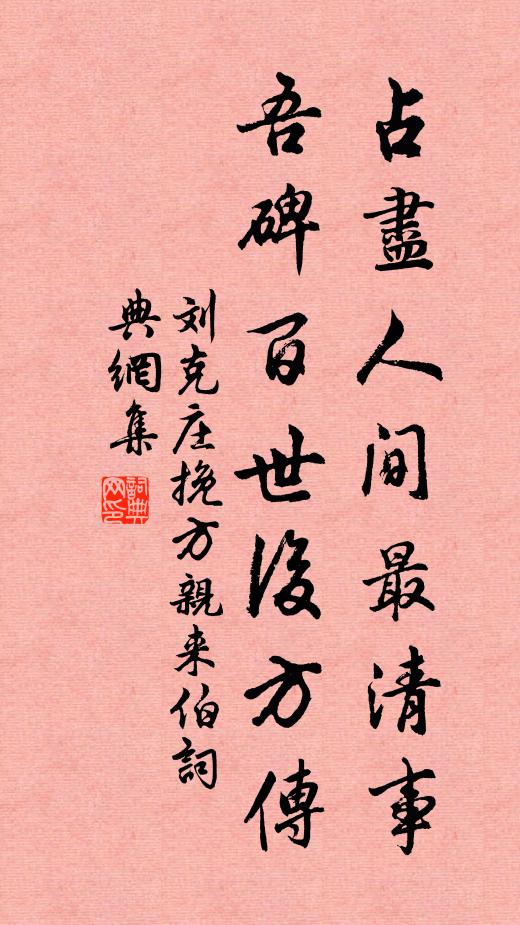 占盡人間最清事
吾碑百世後方傳
刘克庄挽方親来伯詞
典網集
詞典網印